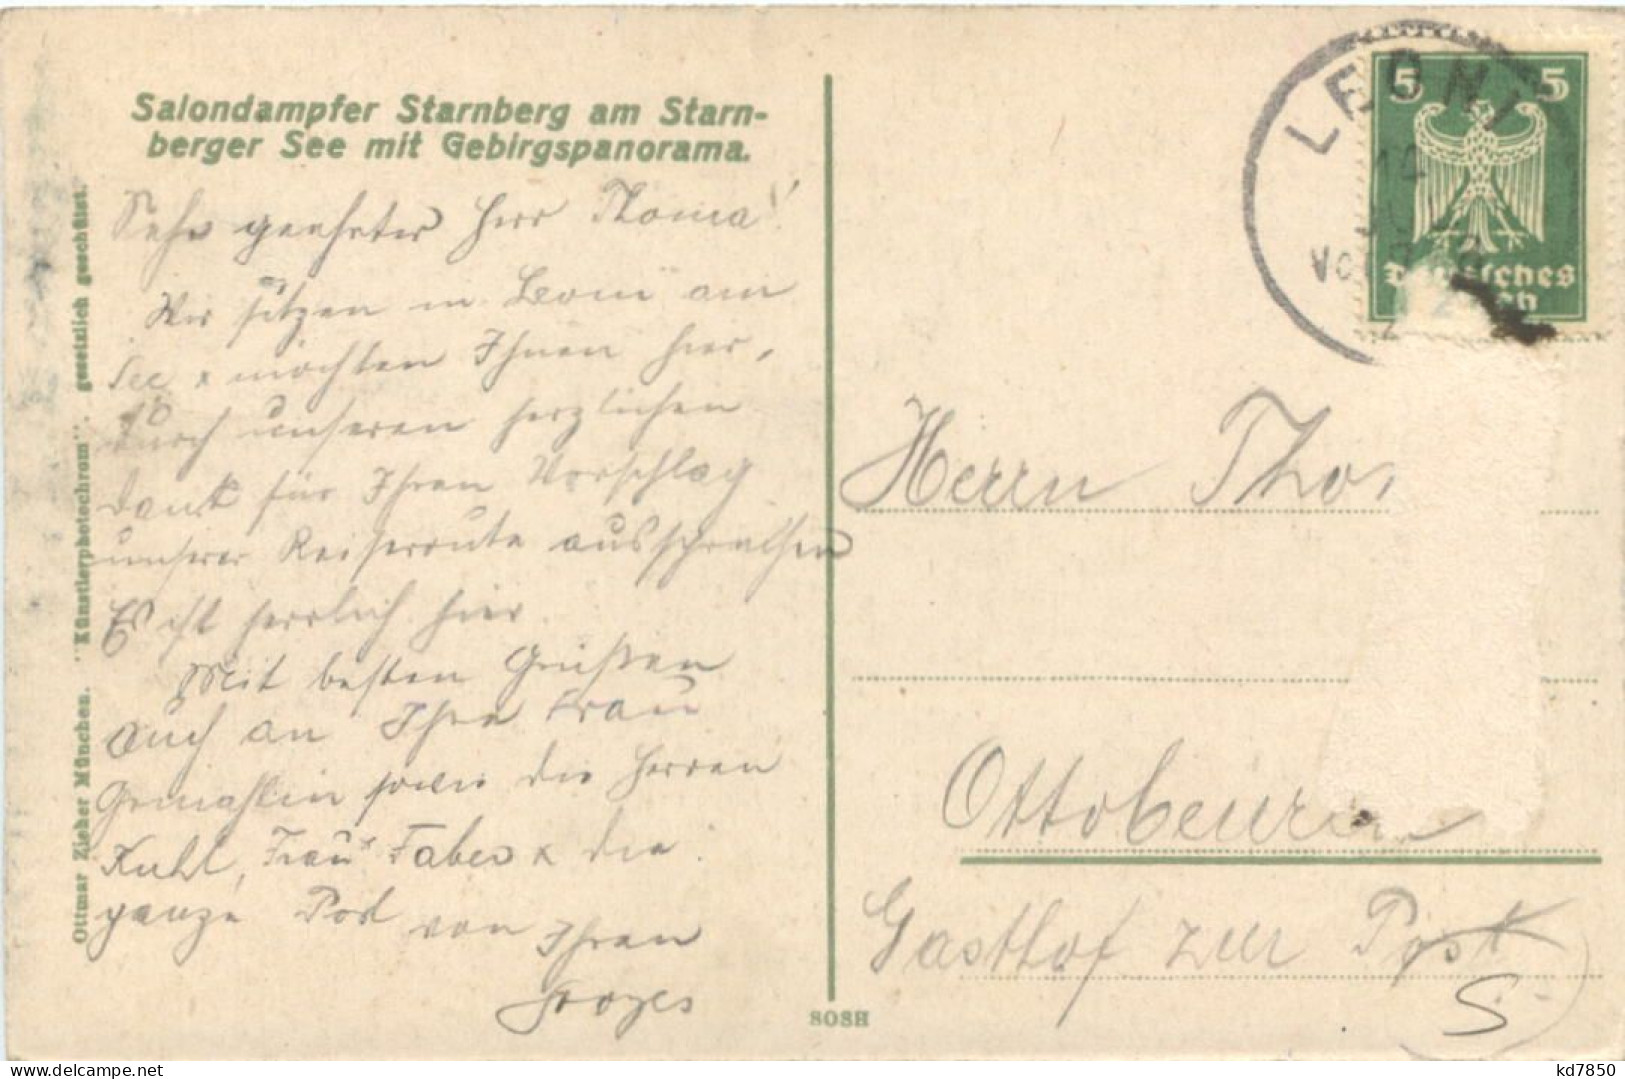 Salondampfer Starnberg am Starn-
berger See mit Gebirgspanorama.
Sehr geehrter Herr Thoma!
Wir sitzen in Leoni am
See & möchten Ihnen hier,
durch unseren herzlichen
Dank für Ihren Vorschlag
unserer Reiseroute aussprechen
Es ist herrlich hier.
Mit besten Grüßen
auch an Ihre Frau
Gemahlin sowie die Herren
Kuhl, Frau Faber & die
ganze Post von Ihren
Ottmar Zieher München. "Künstlerphotochrom". gesetzlich geschützt.
8088
LEONI
5 5
Deutsches
Reich
Herrn Tho
Ottobeuren
Gasthof zur Post
S
kd7850